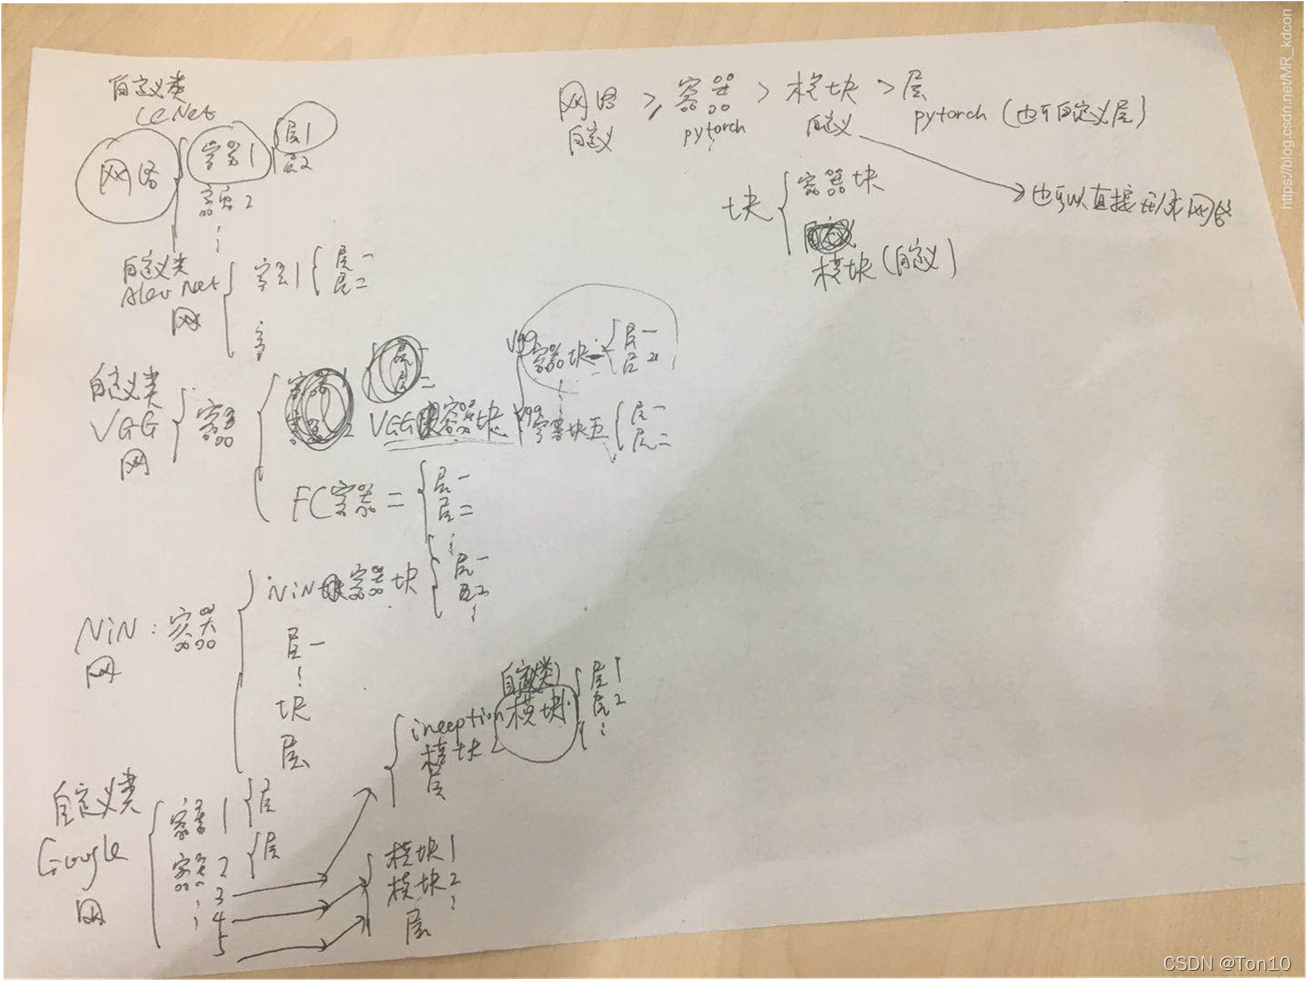 自定义类
LeNet
网络 容器1 层1
层2
容器2
自定义类
AlexNet
网 容器1 层一
层二
自定义类
VGG
网 容器
VGG 容器块
VGG 容器块一 层一
层二
VGG 容器块五 层一
层二
FC容器二 层一
层二
NiN：容器
网
NiN 容器块 层一
层2
层一
块
层
自定义类
Google
网
容器1 层
容器2 层
3
4
5
inception
模块
层
自定义类
模块 层1
层2
模块1
模块2
层
网络 ≥ 容器 > 模块 > 层
自定义 pytorch 自定义 pytorch (也可自定义层)
也可以直接形成网络
块 容器块
模块(自定义)
https://blog.csdn.net/MR_kdcon
CSDN @Ton10